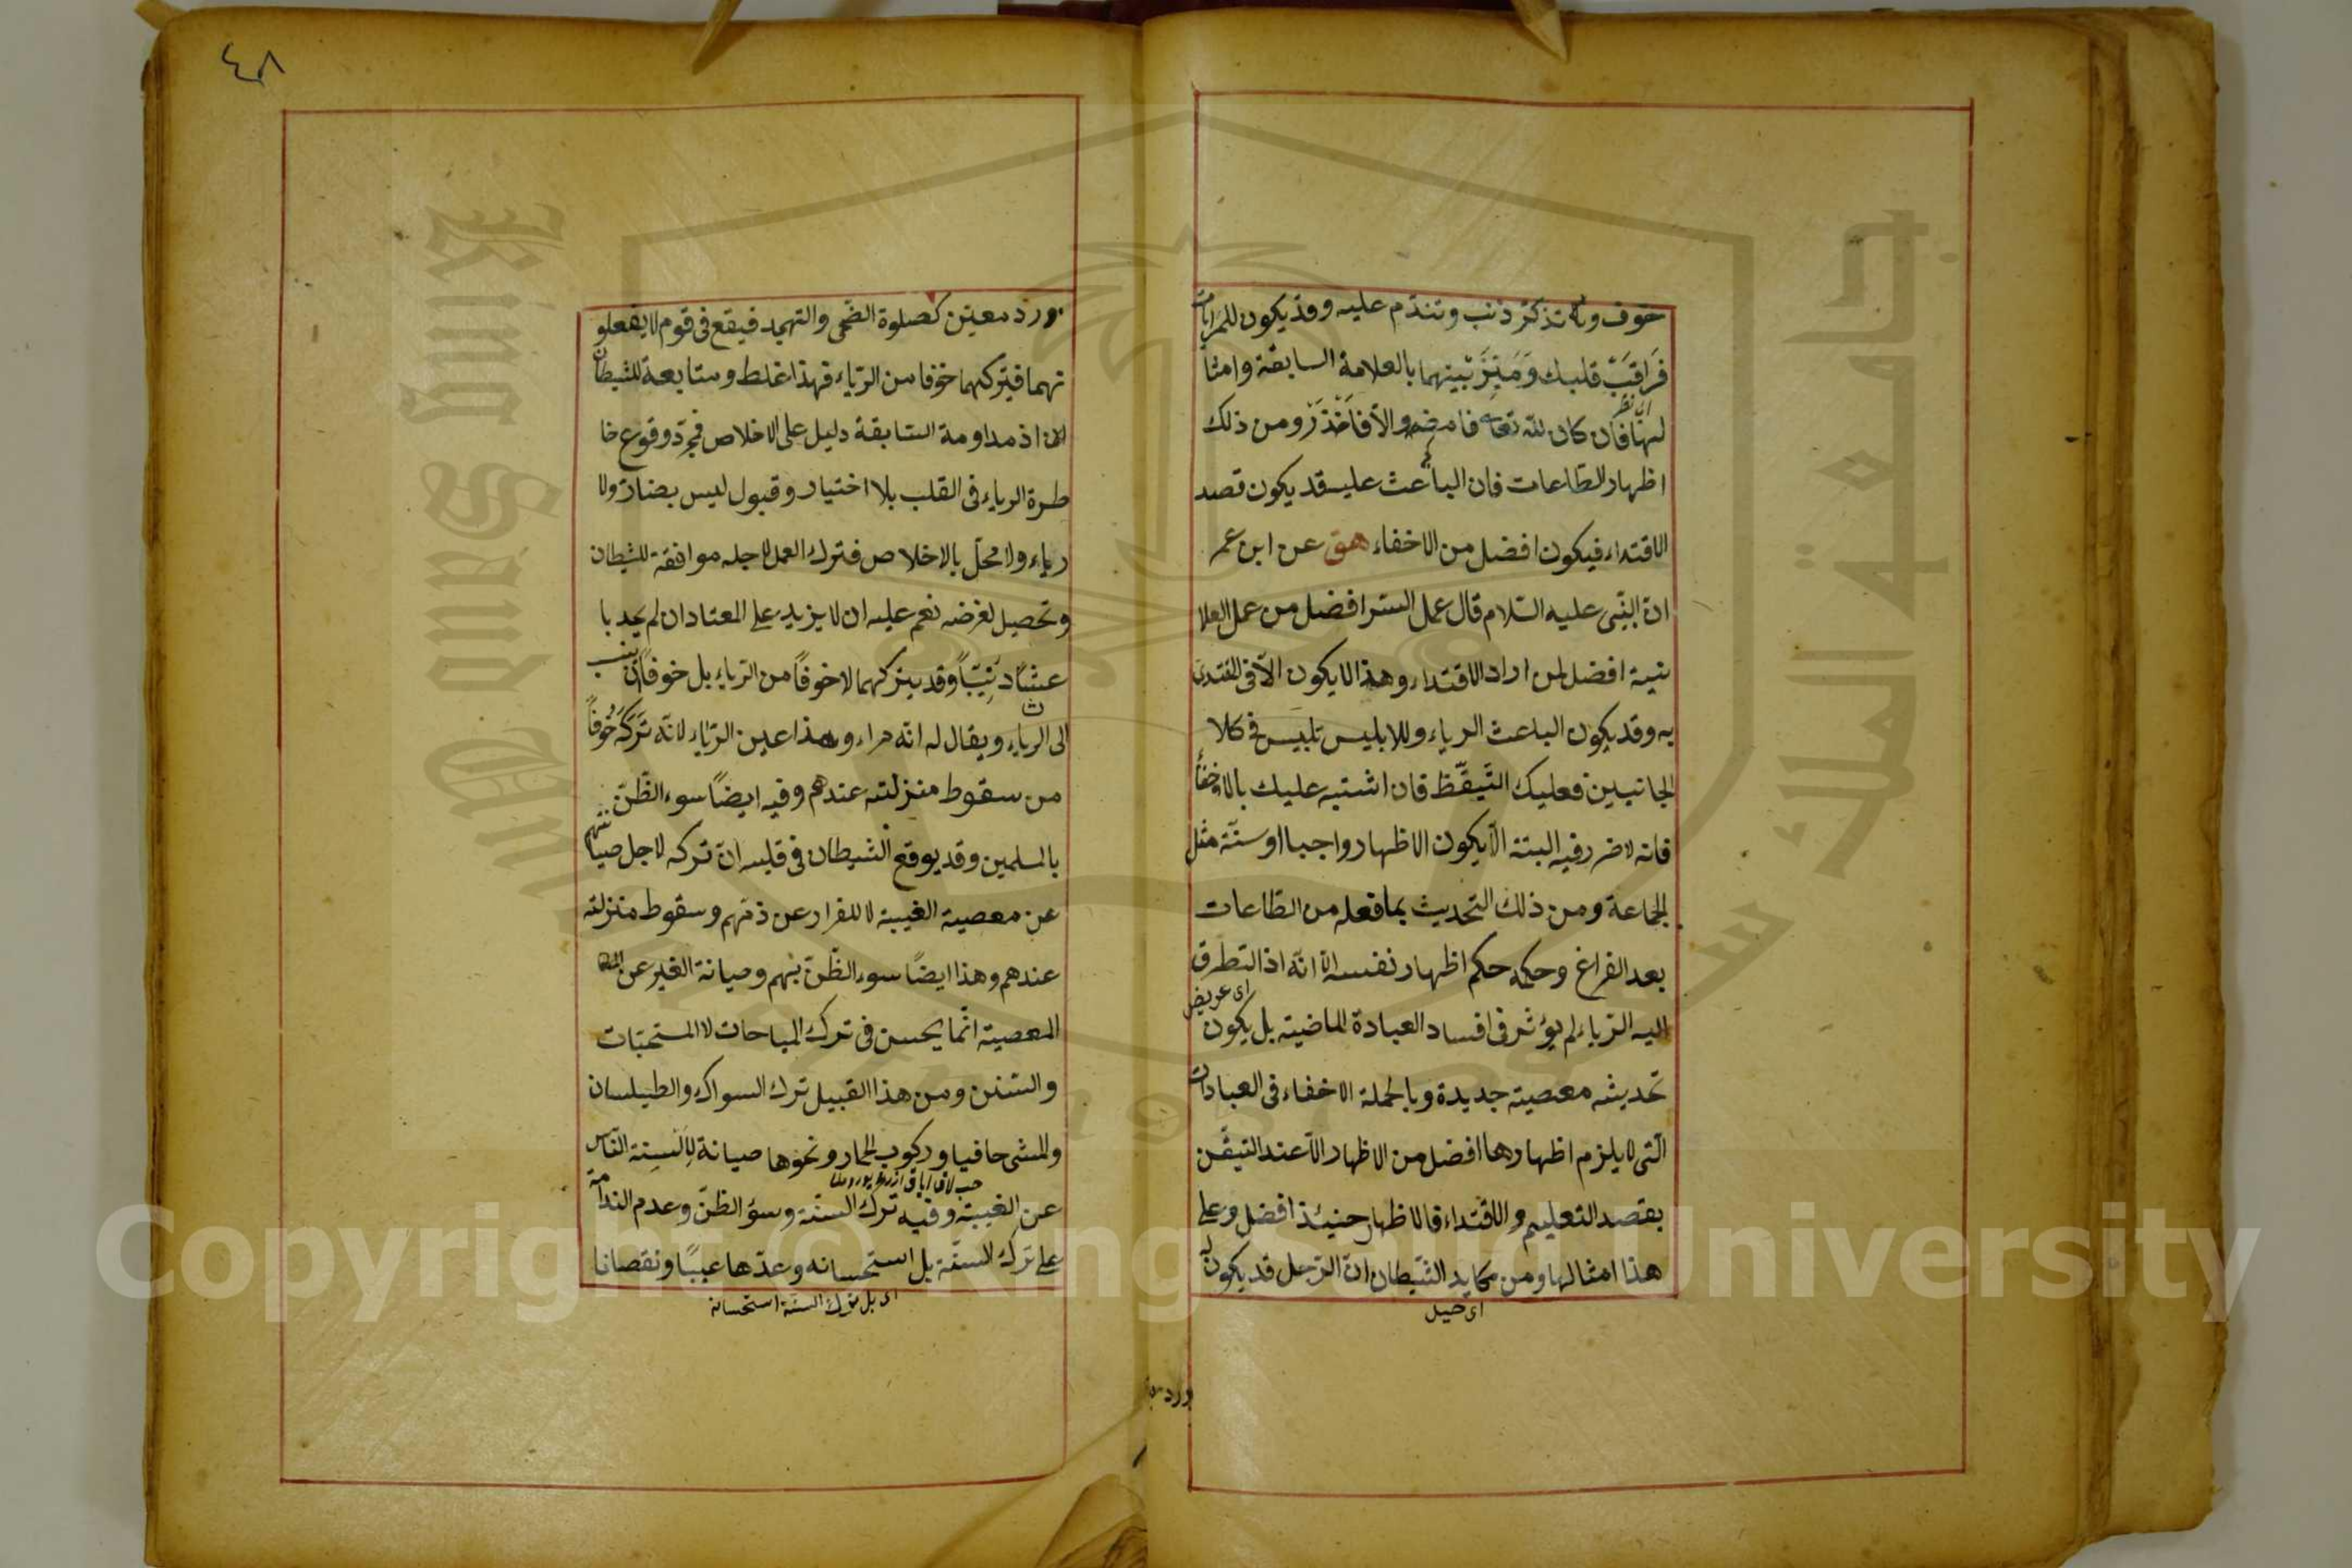 خوف وله تذكر ذنب وتندّم عليه وقد يكون للمراآت
فَرَاقِبَ قلبك وَمَيِّزَ بينهما بالعلامة السابقة وامثا
لها فان كان لله تعالى فامضه والا فاحْذَرْ ومن ذلك
اظهار الطّاعات فان الباعث عليه قد يكون قصد
الاقتداء فيكون افضل من الاخفاء هق عن ابن عمر
انّ النّبى عليه السّلام قال عمل السّر افضل من عمل العلا
نية افضل لمن اراد الاقتداء وهذا لا يكون الاّ فى المقتدى
به وقد يكون الباعث الرياء وللابليس تلبيس فى كلا
الجانبين فعليك التَّيقّظ فان اشتبه عليك بالاخفاء
فانه لا ضرر فيه البتة الاّ يكون الاظهار واجبا او سنّة مثل
الجماعة ومن ذلك التحديث بما فعله من الطّاعات
بعد الفراغ وحكمه حكم اظهار نفسه الا انّه اذا تطرق
اى عريض
اليه الرّياء لم يؤثر فى افساد العبادة الماضية بل يكون
تحديثه معصية جديدة وبالجملة الاخفاء فى العبادات
الّتى لا يلزم اظهارها افضل من الاظهار الاّ عند التيقّن
بقصد التعليم والاقتداء فالاظهار حينئذ افضل وعلى
هذا امثالها ومن مكايد الشّيطان انّ الرّجل قد يكون له
اى حيل
٤٨
ورد معيّن كصلوة الضّحى والتهجد فيقع فى قوم لا يفعلو
نهما فيتركهما خوفا من الرّياء فهذا غلط ومتابعة للشيطان
اذ مداومة السّابقة دليل على الاخلاص فمجرّد وقوع خا
طرة الرياء فى القلب بلا اختيار وقبول ليس بضارّ ولا
رياء ولا مخلّ بالاخلاص فترك العمل لاجله موافقة للشيطان
وتحصيل لغرضه نعم عليه ان لا يزيد على المعتاد ان لم يجد با
عثا دينيّاً وقد يتركهما لا خوفاً من الرّياء بل خوفاً ان ينسب
الى الرياء ويقال له انّه مراء وهذا عين الرّياء لانّه تَرَكَهُ خوفاً
من سقوط منزلته عندهم وفيه ايضاً سوء الظّنّ
بالمسلمين وقد يوقع الشيطان فى قلبه انّ تركه لاجل صيانتهم
عن معصية الغيبة لا للفرار عن ذمّهم وسقوط منزلته
عندهم وهذا ايضاً سوء الظّنّ بهم وصيانة الغير عن
المعصية انّما يحسن فى ترك المباحات لا المستحبّات
والسّنن ومن هذا القبيل ترك السواك والطيلسان
والمشى حافيا وركوب الحمار ونحوها صيانة لِاَلْسِنة النّاس
عن الغيبة وفيه ترك السنّة وسوء الظّنّ وعدم الندامة
على ترك السنّة بل استحسانه وعدّها عيبًا ونقصانا
اى بل ترك السنّة استحسانه